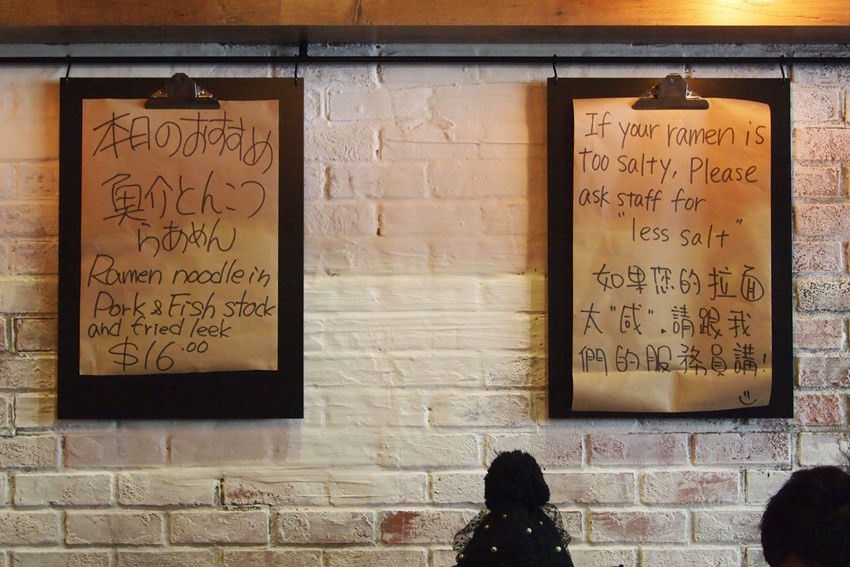 本日のおすすめ
魚介とんこつ
らあめん
Ramen noodle in
Pork & Fish stock
and fried leek
$16.00
If your ramen is
too salty, Please
ask staff for
"less salt"
如果您的拉面
太"咸".請跟我
們的服務員講!